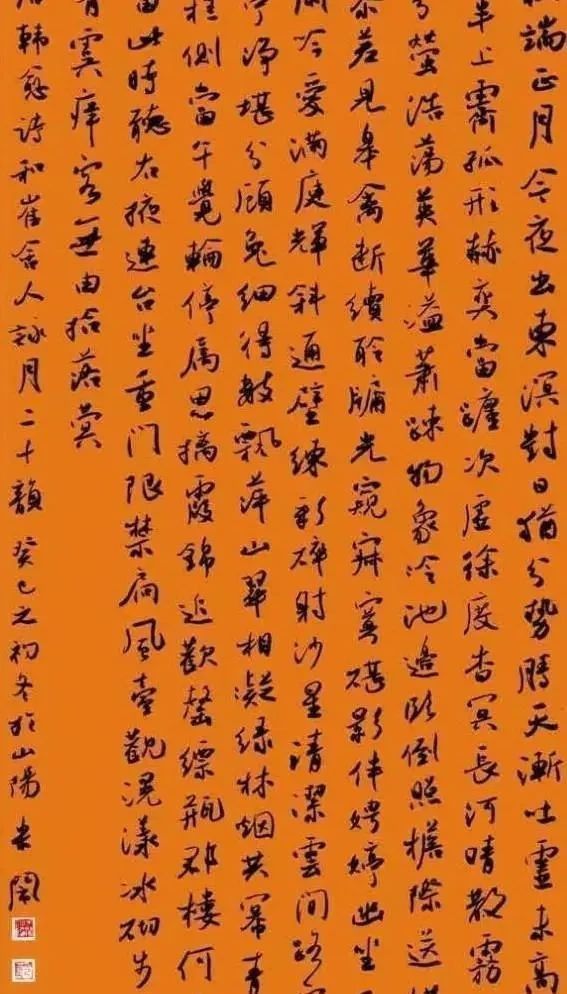 端正月今夜出東溟對日猶分勢騰天漸吐靈未高
半上霽孤形赫奕當躔次虛徐度杳冥長河晴散霧
分螢浩蕩英華溢蕭疎物象冷池邊臨倒照檐際送
差見皋禽斷續聆牖光窺寂寞砧影伴娉婷幽坐
吟愛滿庭輝斜通壁練彩碎射沙星清潔雲間路
亭淨堪分顧兔細得數飄萍山翠相凝綠林烟共冪青
桂側當午覺輪停屬思摘霞錦追歡罄縹瓶郡樓何
此時聽右掖連台坐重门限禁扃風臺觀滉漾冰砌步
有虞庠客無由拾落蓂
韓愈詩和崔舍人詠月二十韻癸巳之初冬於山陽